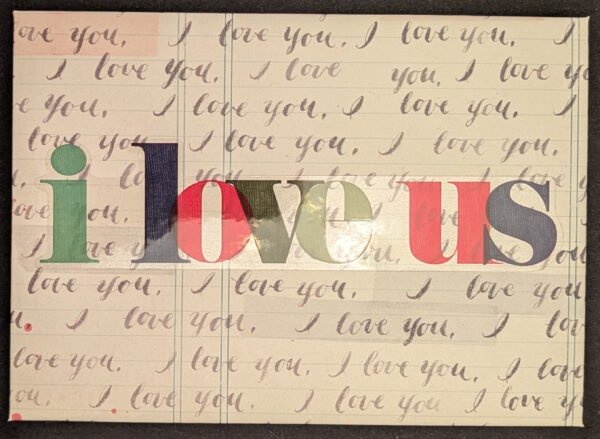 ove you, I love you, I love you, I
I love you, I love you, I love yo
e you, I love you, I love you, I
love you, I love you, I love you,
I lo you, I love you, I love y
i love us
ove you,
I love y
love you, I love you, I love you,
u, I love you, I love you, I lov
love you, I love you, I love you, I love
ou, I love you, I love you I love y